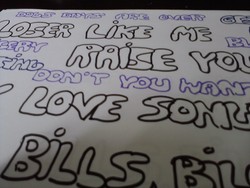 COLD BOYS ARE EVERY
LOSER LIKE ME
RAISE YOU
DON'T YOU WANT
LOVE SONG
BILLS, BIL